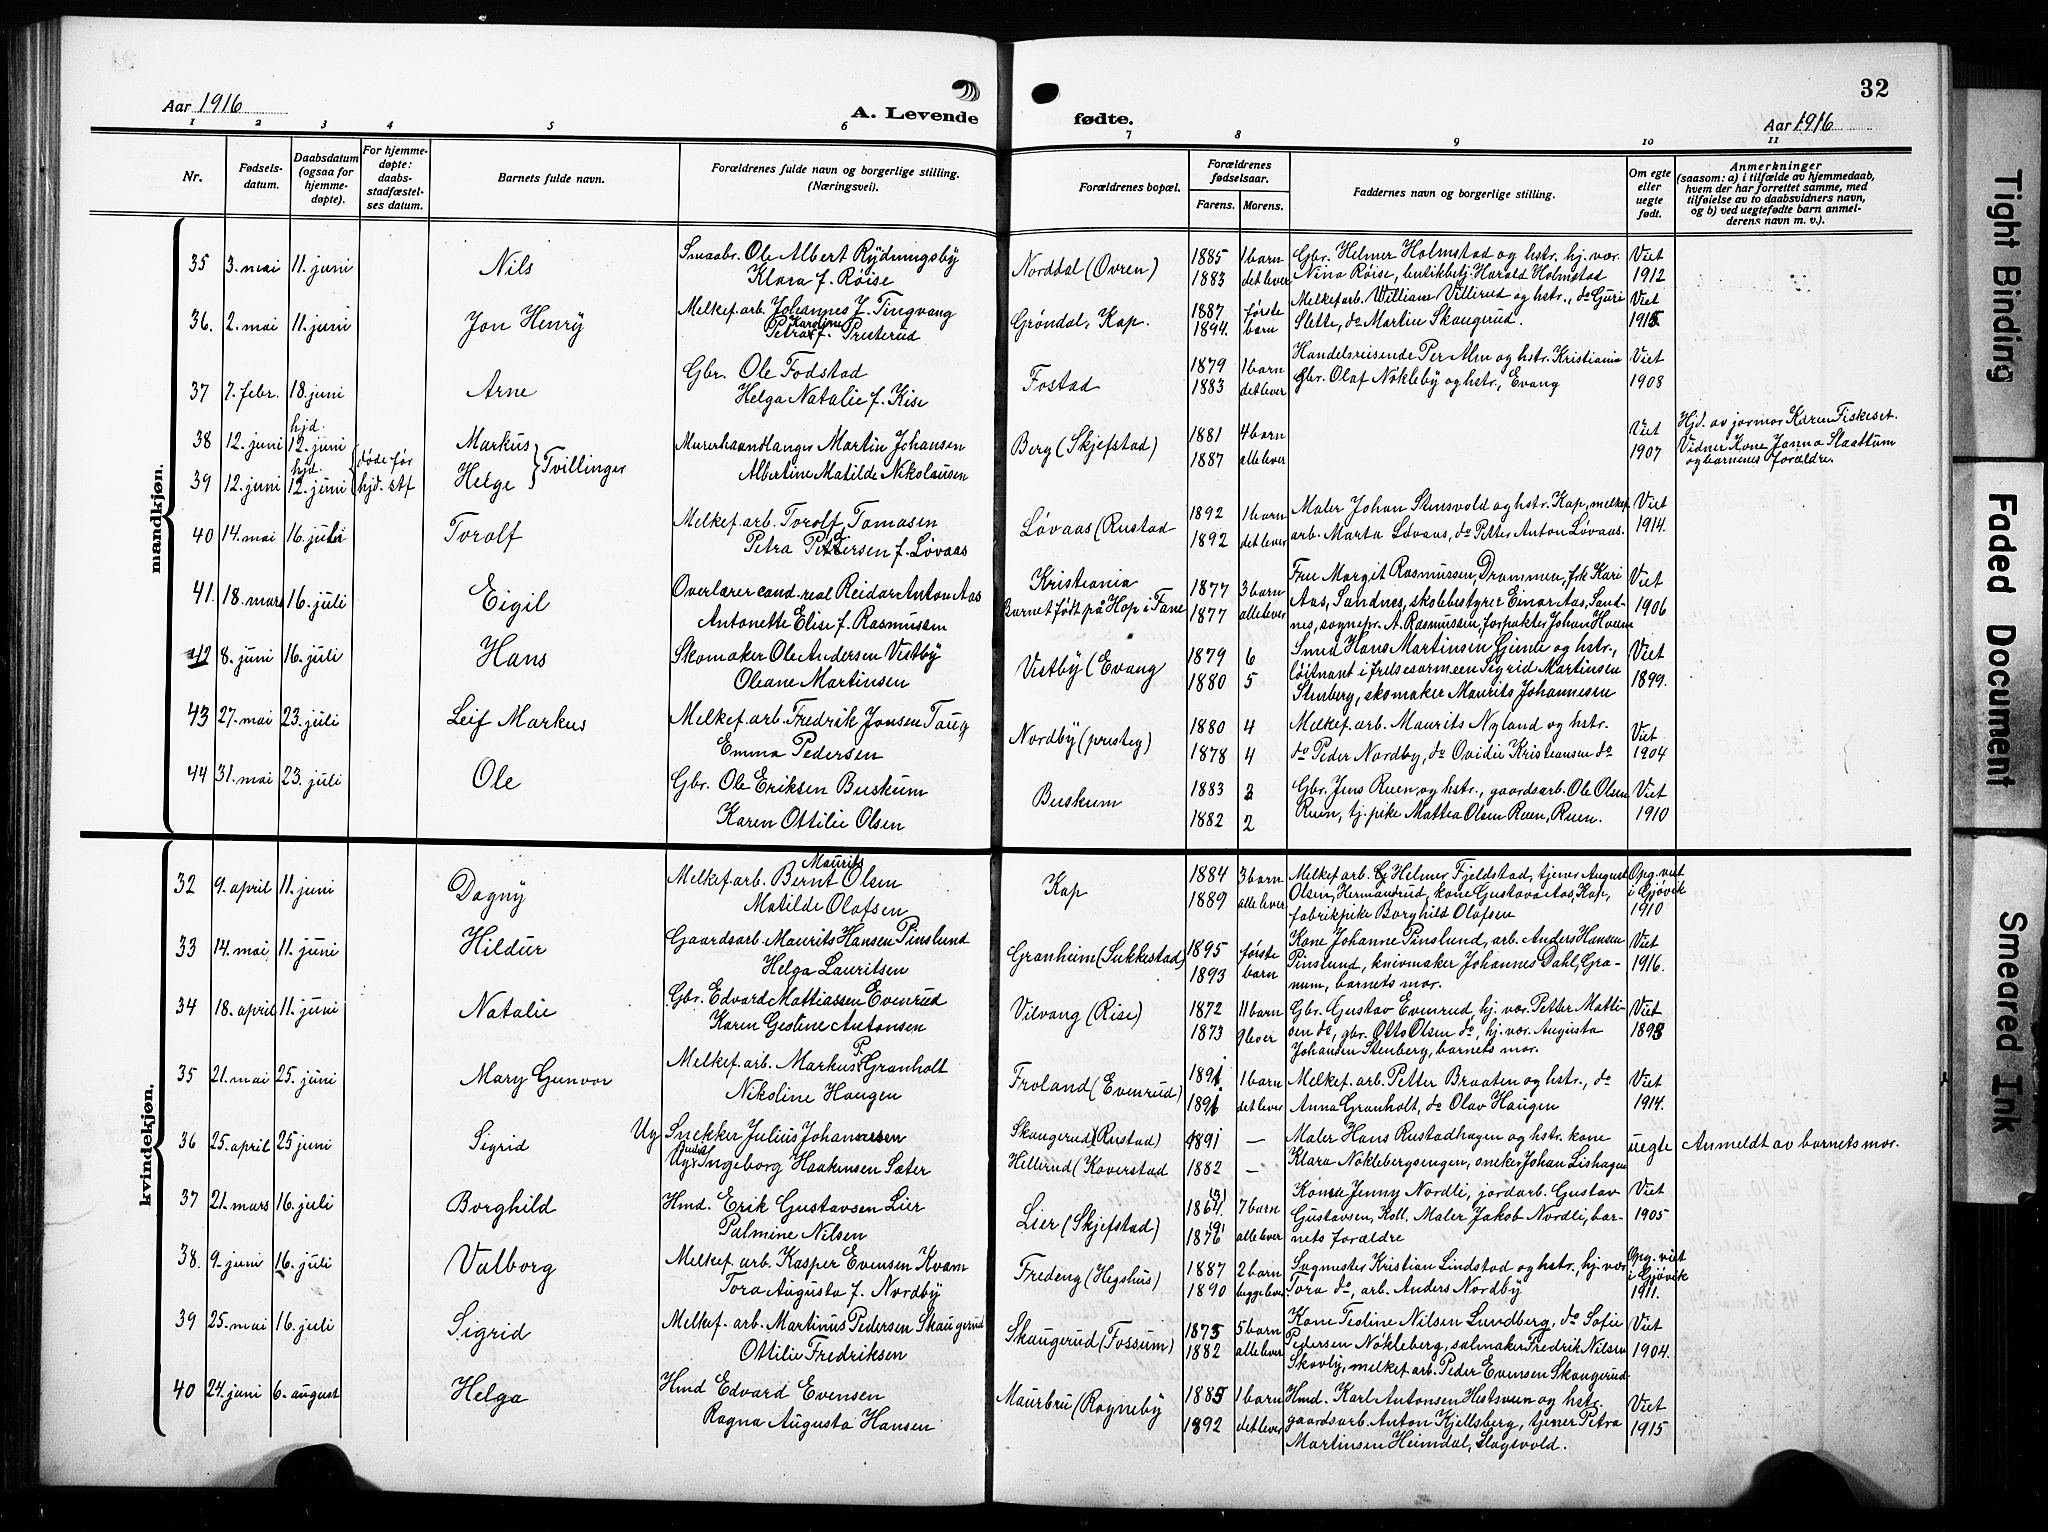 32
Aar 1916
A. Levende fødte.
Aar 1916
1 2 3 4 5 6 7 8 9 10 11
Nr.
Fødsels-
datum.
Daabsdatum
(ogsaa for
hjemme-
døpte).
For hjemme-
døpte:
daabs-
stadfæstel-
ses datum.
Barnets fulde navn.
Forældrenes fulde navn og borgerlige stilling.
(Næringsvei).
Forældrenes bopæl.
Forældrenes
fødselsaar.
Farens. Morens.
Faddernes navn og borgerlige stilling.
Om egte
eller
uegte
født.
Anmerkninger
(saasom: a) i tilfælde av hjemmedaab,
hvem der har forrettet samme, med
tilføielse av to daabsvidners navn,
og b) ved uegtefødte barn anmel-
derens navn m. v.).
mandkjøn.
35 3. mai 11. juni Nils Smaabr. Ole Albert Rydningsby Norddal (Øvren) 1885 1 barn Gbr. Helmer Holmstad og hstr. hj. vær. Viet
Klara f. Røise 1883 det lever Nina Røise, butikbetj. Harald Holmstad 1912
36. 2. mai 11. juni Jon Henry Melkef. arb. Johannes J. Tingvang Grøndal, Kap. 1887 første Melkef arb. William Villerud og hstr., do Guri Viet
Petra Karoline f. Presterud 1894. barn Slette, do Martin Skaugerud. 1915
37 7. febr. 18. juni Arne Gbr. Ole Fodstad Fostad 1879 1 barn Handelsreisende Per Alm og hstr. Kristiania Viet
Helga Natalie f. Kise 1883 det lever Gbr. Olaf Nøkleby og hstr., Evang 1908
38 12. juni hjd. 12. juni Markus Murerhaandlanger Martin Johansen Berg (Skjefstad) 1881 4 barn Viet Hjd. av jormor Karen Fiskeset.
39 12. juni hjd. 12. juni døde før hjd. stf Helge Tvillinger Albertine Matilde Nikolaisen 1887 alle lever 1907 Vidner Kone Janna Slaattum
og barnenes forældre.
40 14. mai 16. juli Torolf Melkef. arb. Torolf Tomasen Løvaas (Rustad 1892 1 barn Maler Johan Stensvold og hstr. Kap, melkef. Viet
Petra Pettersen f. Løvaas 1892 det lever arb. Marta Løvaas, do Petter Anton Løvaas. 1914.
41. 18. mars 16. juli Eigil Overlærer cand. real Reidar Anton Aas Kristiania 1877 3 barn Fru Margit Rasmussen, Drammen, frk Kari Viet
Antonette Elise f. Rasmussen Barnet født på Hop i Fane 1877 alle lever Aas, Sandnes, skolebestyrer Einar Aas, Sand- 1906
nes, sognepr. A. Rasmussen, forpakter Johan Hoem
42 8. juni 16. juli Hans Skomaker Ole Andersen Vestby Vestby (Evang 1879 6 Smed Hans Martinsen Gjenle og hstr., Viet
Oleane Martinsen 1880 5 løitnant i frelsesarmeen Sigrid Martinsen 1899.
Stenberg, skomaker Maurits Johannesen
43 27. mai 23. juli Leif Markus Melkef. arb. Fredrik Jonsen Taug Nordby (presteg) 1880 4 Melkef. arb. Maurits Nyland og hstr. Viet
Emma Pedersen 1878 4 do Peder Nordby, do Ovidie Kristiansen do 1904
44 31. mai 23. juli Ole Gbr. Ole Eriksen Buskum Buskum 1883 2 Gbr. Jens Ruen, og hstr., gaardsarb. Ole Olsen Viet
Karen Ottilie Olsen 1882 2 Ruen, tj. pike Mattea Olsen Ruen, Ruen. 1910
kvindekjøn.
32 9. april 11. juni Dagny Melkef. arb. Bernt Maurits Olsen Kap 1884 3 barn Melkef. arb. Helmer Fjeldstad, tjener August Opg. viet
Matilde Olafsen 1889 alle lever Olsen, Hermandrud, kone Gustava Aas, Kap, i Gjøvik
fabrikpike Borghild Olafsen 1910
33 14. mai 11. juni Hildur Gaardsarb. Maurits Hansen Pinslund Granheim (Sukkestad) 1895 første Kone Johanne Pinslund, arb. Anders Hansen Viet
Helga Lauritsen 1893 barn Pinslund, knivmaker Johannes Dahl, Gra- 1916.
num, barnets mor.
34 18. april 11. juni Natalie Gbr. Edvard Mattiassen Evenrud Vilvang (Rise) 1872 11 barn Gbr. Gustav Evenrud, hj. vær. Petter Matti- Viet
Karen Gestine Antonsen 1873 9 lever sen do, gbr. Otto Olsen do, hj. vær. Augusta 1893
Johansen Stenberg, barnets mor.
35 21. mai 25. juni Mary Gunvor Melkef. arb. Markus P. Granholt Froland (Evenrud) 1891 1 barn Melkef. arb. Petter Braaten og hstr., do Viet
Nikoline Haugen 1891 det lever Anna Granholt, do Olav Haugen 1914.
36 25. april 25 juni Sigrid Ug Snekker Julius Johannesen Skaugerud (Rustad) 1891 — Maler Hans Rustadhagen og hstr. kone uegte Anmeldt av barnets mor.
Ingeborg Haakensen Sæter Hellerud (Koverstad 1882 — Klara Nøklebergsengen, snekker Johan Lishagen
37 21. mars 16. juli Borghild Hmd. Erik Gustavsen Lier Lier (Skjefstad) 1864 7 barn Kone Jenny Nordli, jordarb. Gustav Viet
Palmine Nilsen 1876 alle lever Gustavsen, Koll. Maler Jakob Nordli, bar- 1905
nets forældre
38. 9. juni 16. juli Valborg Melkef. arb. Kasper Evensen Kvam Fredeng (Hegshus) 1887 2 barn Sagmester Kristian Lindstad og hstr., hj. vær Opg. viet
Tora Augusta f. Nordby 1890 begge lever Tora do, arb. Anders Nordby i Gjøvik
1911.
39 25. mai 16. juli Sigrid Melkef. arb. Martinus Pedersen Skaugerud Skaugerud (Fossum) 1875 5 barn Kone Teoline Nilsen Lundberg, do Sofie Viet
Ottilie Fredriksen 1882 alle lever Pedersen Nøkleberg, salmaker Fredrik Nilsen 1904.
Skovly, melkef. arb. Peder Evensen Skaugerud
40 24. juni 6. august Helga Hmd Edvard Evensen Maurbru (Rogneby 1885 1 barn Hmd. Karl Antonsen Hestsveen og hstr. Viet
Ragna Augusta Hansen 1892 det lever gaardsarb. Anton Kjellsberg, tjener Petra 1915
Martinsen Heimdal, Slagsvold.
Tight Binding
Faded Document
Smeared Ink